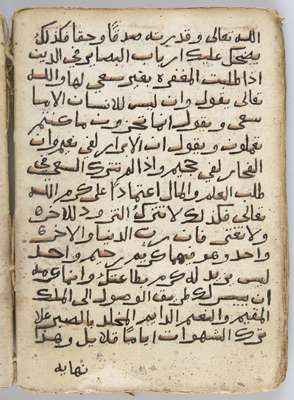 الله تعالى وقدرته صدقا وحقا فكذلك
يضحك عليك ارباب البصاير في الدين
اذا طلبت المغفرة بغير سعي لها والله
تعالى يقول وان ليس للانسان الا ما
سعى ويقول انما تجزون ما كنتم
تعملون ويقول ان الابرار لفي نعيم وان
الفجار لفي جحيم واذا لم تترك السعي في
طلب العلم والمال اعتمادا على كرم الله
تعالى فكذلك لا تترك التزود للاخرة
ولا تفتر فان رب الدنيا والاخرة
واحد وهو فيهما كريم رحيم واحد
ليس يزيد له كرم بطاعتك وانما كرمه
ان ييسر لك طريق الوصول الى الملك
المقيم والنعيم الدايم المخلد بالصبر على
ترك الشهوات اياما قلايل وهذا
نهاية